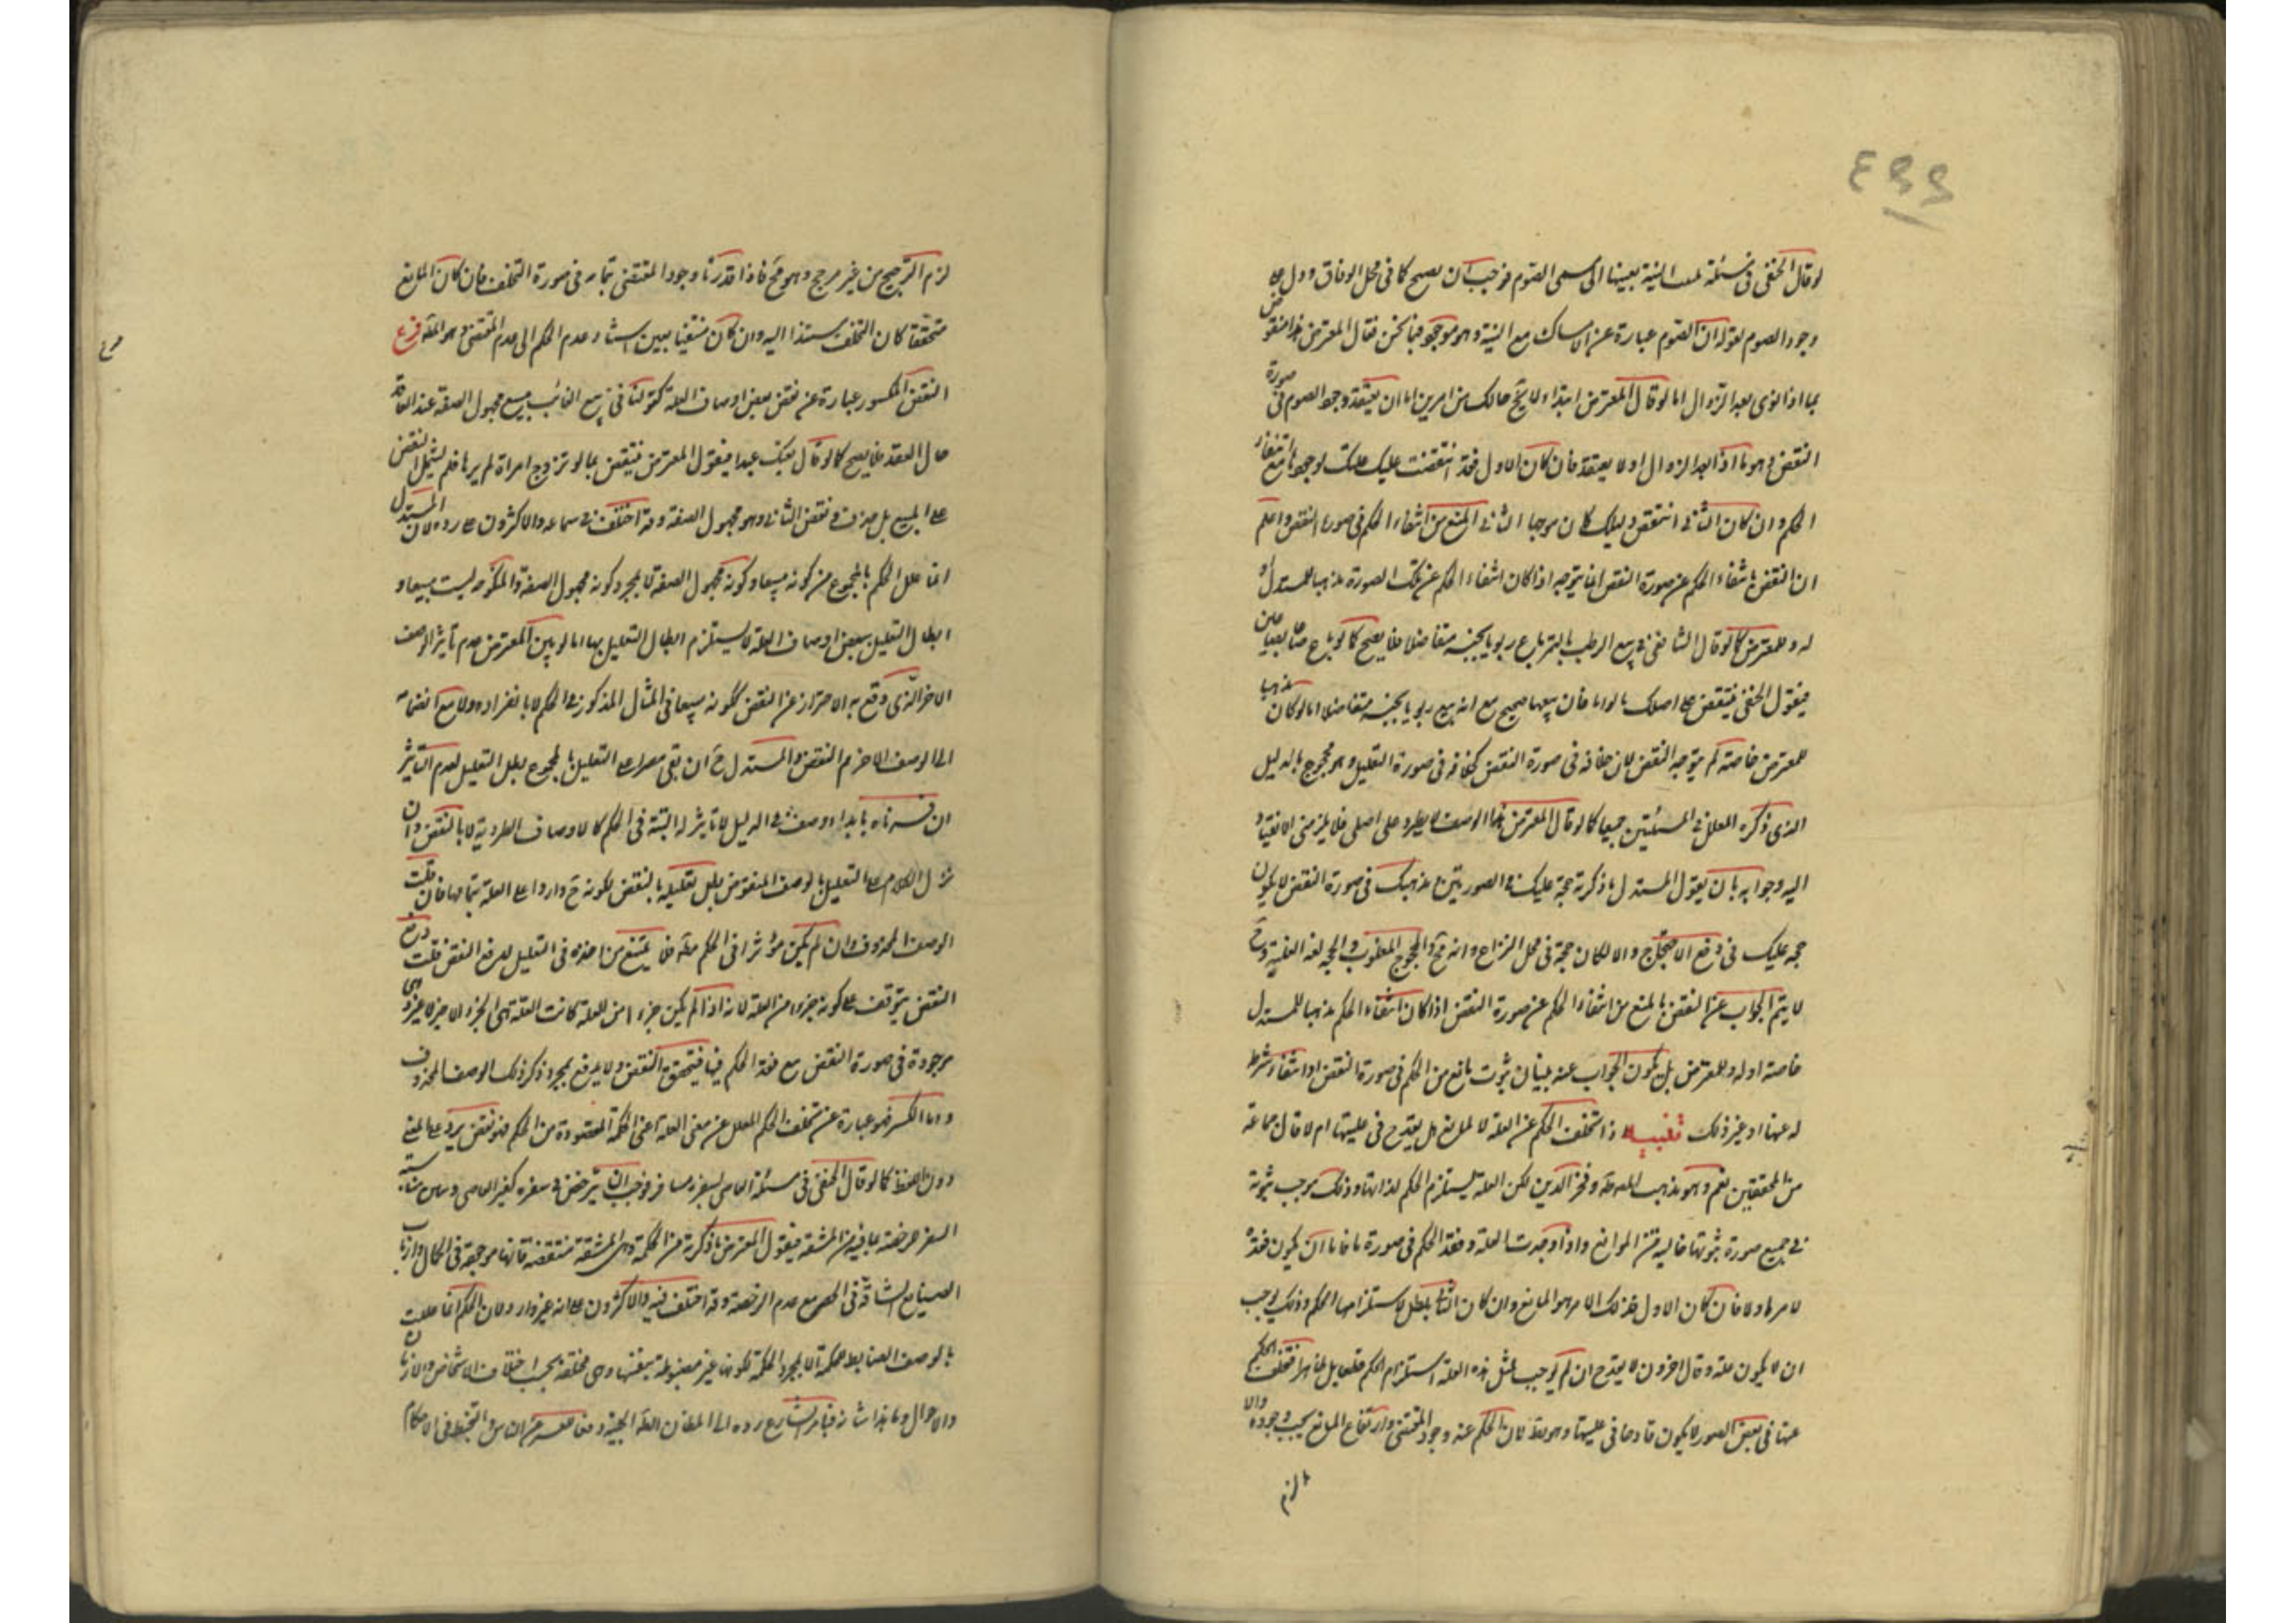 ٤٩٩
لو قال الحنفى فى مسئلة تبييت النية بعينها اتى بمسمى الصوم فوجب ان يصح كما فى محل الوفاق ودل على
وجود الصوم بقوله ان الصوم عبارة عن الامساك مع النية وهو موجود فيما نحن فقال المعترض هذا منقوض
بما اذا نوى بعد الزوال اما لو قال المعترض ابتداء لا يخ حالك من امرين اما ان يعتقد وجود الصوم فى صورة
النقض وهو ما اذا بعد الزوال او لا يعتقد فان كان الاول فقد انتقضت عليك علتك لوجودها مع انتفاء
الحكم وان كان الثانى انتقض دليلك كان موجبا الثانى المنع من انتفاء الحكم فى صورة النقض واعلم
ان النقض بانتفاء الحكم عن صورة النقض انما يتوجه اذا كان انتفاء الحكم عن تلك الصورة مذهبا للمستدل او
له وللمعترض كما لو قال الشافعى فى بيع الرطب بالتمر باع ربويا بجنسه متفاضلا فلا يصح كما لو باع صاعا بصاعين
فيقول الحنفى ينتقض على اصلك بالعرايا فان بيعها صحيح مع انه بيع ربويا بجنسه متفاضلا اما لو كان مذهبا
للمعترض خاصة لم يتوجه النقض لان خلافه فى صورة النقض كخلافه فى صورة التعليل وهو محجوج بالدليل
الذى ذكره المعلل فى المسئلتين جميعا كما لو قال المعترض هذا الوصف لا يطرد على اصلى فلا يلزمنى الانقياد
اليه وجوابه بان يقول المستدل ما ذكرته حجة عليك فى الصورتين ومذهبك فى صورة النقض لا يكون
حجه عليك فى دفع الاحتجاج والا لكان حجة فى محل النزاع وانه مح والمحجوج المغلوب والحجه لغة الغلبة وح
لا يتم الجواب عن النقض بالمنع من انتفاء الحكم عن صورة النقض اذا كان انتفاء الحكم مذهبا للمستدل
خاصة او له وللمعترض بل يكون الجواب عنه ببيان ثبوت مانع من الحكم فى صورة النقض او انتفاء شرط
له عنها او غير ذلك تنبيه اذا تخلف الحكم عن العلة لا لمانع هل يقدح فى عليتها ام لا قال جماعة
من المحققين نعم وهو مذهب المص وفخر الدين لكن العلة يستلزم الحكم لذاتها وذلك يوجب ثبوته
فى جميع صورة ثبوتها خاليه من الموانع واذا وجدت العلة وفقد الحكم فى صورة ما فاما ان يكون فقده
لامر ما ولا فان كان الاول فذلك الامر هو المانع وان كان الثانى بطل استلزامها الحكم وذلك يوجب
ان لا يكون علة وقال اخرون لا يقدح ان لم يوجب مثل هذه العلة استلزام الحكم قطعا بل ظاهرا فتخلف الحكم
عنها فى بعض الصور لا يكون قادحا فى عليتها وهو بط لان الحكم عند وجود المقتضى وارتفاع المانع يجب وجوده والا
لزم
لزم الترجيح من غير مرجح وهو مح فاذا قدرنا وجود المقتضى بتمامه فى صورة التخلف فان كان المانع
متحققا كان التخلف مستندا اليه وان كان منتفيا تبين استناد عدم الحكم الى عدم المقتضى وهو العلة فرع
النقض المكسور عبارة عن نقض بعض اوصاف العلة كقولنا فى بيع الغائب مبيع مجهول الصفة عند العاقد
حال العقد فلا يصح كما لو قال بعتك عبدا فيقول المعترض ينتقض بما لو تزوج امراة لم يرها فلم يشتمل النقض
على المبيع بل حذف ونقض الثانى وهو مجهول الصفة وقد اختلف فى سماعه والاكثرون على رده لان المستدل
انما علل الحكم بالمجموع من كونه مبيعا وكونه مجهول الصفة لا بمجرد كونه مجهول الصفة والمنكوحه ليست مبيعا و
ابطال التعليل ببعض اوصاف العلة لا يستلزم ابطال التعليل بها اما لو بين المعترض عدم تاثير الوصف
الاخر الذى وقع به الاحتراز عن النقض ككونه مبيعا فى المثال المذكور فى الحكم لا بانفراده ولا مع انضمامه
الى الوصف الاخر تم النقض والمستدل ح ان بقى مصرا على التعليل بالمجموع بطل التعليل لعدم التاثير
ان فسرناه بابداء وصف فى الدليل لا تاثير له البتة فى الحكم كالاوصاف الطردية لا بالنقض وان
ترك الكلام على التعليل بالوصف المنقوض بطل تعليله بالنقض لكونه ح واردا على العلة بتمامها فان قلت
الوصف المحذوف وان لم يكن مؤثرا فى الحكم فلا يمتنع من اخذه فى التعليل لدفع النقض قلت دفع
النقض يتوقف على كونه جزءا من العلة لانه اذا لم يكن جزءا من العلة كانت العلة هى الجزء الاخر لا غير وهى
موجودة فى صورة النقض مع فقد الحكم فيها فيتحقق النقض ولا يندفع بمجرد ذكر ذلك الوصف المحذوف
واما الكسر فهو عبارة عن تخلف الحكم المعلل عن معنى العلة اعنى الحكمة المقصودة من الحكم فهو نقض يرد على المعنى
دون اللفظ كما لو قال الحنفى فى مسئلة العاصى بسفره مسافر فوجب ان يترخص فى سفره كغير العاصى وبين مناسبة
السفر للرخصة بما فيه من المشقة فيقول المعترض ما ذكرته من الحكمة وهى المشقة منتقضة فانها موجودة فى الحمال وارباب
الصنايع الشاقة فى الحضر مع عدم الرخصة وقد اختلف فيه والاكثرون على انه غير وارد لان الحكم انما علل
بالوصف الضابط للحكمة لا بمجرد الحكمة لكونها غير مضبوطة بنفسها وهى مختلفة بحسب اختلاف الاشخاص والازمان
والاحوال وما هذا شانه فداب الشارع رده الى المظان الظه الجليه دفعا للعسر عن الناس والتخبط فى الاحكام